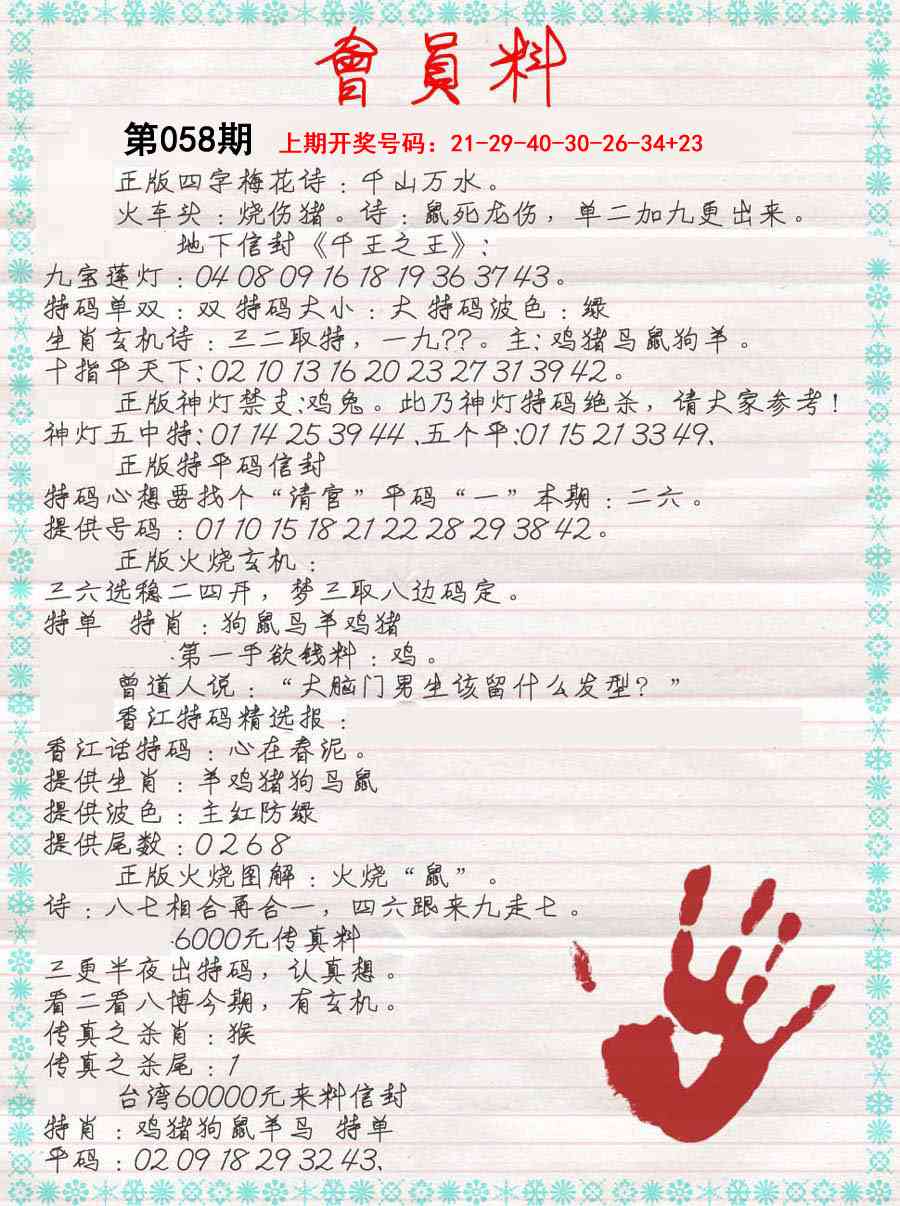 會員料
第058期 上期开奖号码：21-29-40-30-26-34+23
正版四字梅花诗：千山万水。
火车头：烧伤猪。诗：鼠死龙伤，单二加九更出来。
地下信封《千王之王》：
九宝莲灯：04 08 09 16 18 19 36 37 43。
特码单双：双 特码大小：大 特码波色：绿
生肖玄机诗：三二取特，一九??。主：鸡猪马鼠狗羊。
十指平天下：02 10 13 16 20 23 27 31 39 42。
正版神灯禁支：鸡兔。此乃神灯特码绝杀，请大家参考！
神灯五中特：01 14 25 39 44、五个平：01 15 21 33 49、
正版特平码信封
特码心想要找个“清官”平码“一”本期：二六。
提供号码：01 10 15 18 21 22 28 29 38 42。
正版火烧玄机：
三六选稳二四开，梦三取八边码定。
特单 特肖：狗鼠马羊鸡猪
第一手欲钱料：鸡。
曾道人说：“大脑门男生该留什么发型？”
香江特码精选报：
香江话特码：心在春泥。
提供生肖：羊鸡猪狗马鼠
提供波色：主红防绿
提供尾数：0 2 6 8
正版火烧图解：火烧“鼠”。
诗：八七相合再合一，四六跟来九走七。
6000元传真料
三更半夜出特码，认真想。
看二看八博今期，有玄机。
传真之杀肖：猴
传真之杀尾：1
台湾60000元来料信封
特肖：鸡猪狗鼠羊马 特单
平码：02 09 18 29 32 43、